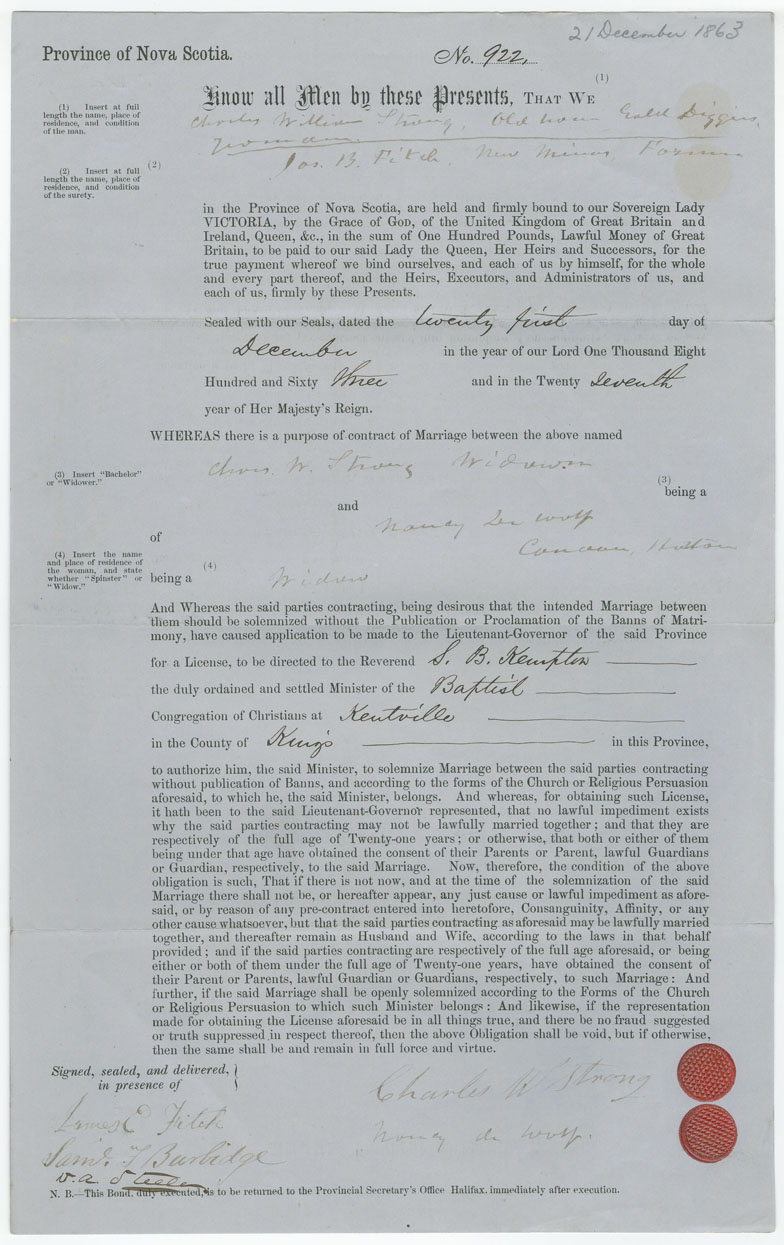 21 December 1863
Province of Nova Scotia.
No. 922,
(1)
Know all Men by these Presents, THAT WE
(1) Insert at full length the name, place of residence, and condition of the man.
Charles William Strong, Old Gold Diggins,
(2)
Jas. B. Fitch, New Minas, Farmer
(2) Insert at full length the name, place of residence, and condition of the surety.
in the Province of Nova Scotia, are held and firmly bound to our Sovereign Lady
VICTORIA, by the Grace of GOD, of the United Kingdom of Great Britain and
Ireland, Queen, &c., in the sum of One Hundred Pounds, Lawful Money of Great
Britain, to be paid to our said Lady the Queen, Her Heirs and Successors, for the
true payment whereof we bind ourselves, and each of us by himself, for the whole
and every part thereof, and the Heirs, Executors, and Administrators of us, and
each of us, firmly by these Presents.
Sealed with our Seals, dated the twenty first day of
December in the year of our Lord One Thousand Eight
Hundred and Sixty three and in the Twenty Seventh
year of Her Majesty's Reign.
WHEREAS there is a purpose of contract of Marriage between the above named
Chas. W. Strong Widower
(3) Insert "Bachelor" or "Widower."
(3)
being a
and
Nancy De Wolf
of
Horton
(4) Insert the name and place of residence of the woman, and state whether "Spinster" or "Widow."
(4)
being a Widow
And Whereas the said parties contracting, being desirous that the intended Marriage between
them should be solemnized without the Publication or Proclamation of the Banns of Matri-
mony, have caused application to be made to the Lieutenant-Governor of the said Province
for a License, to be directed to the Reverend S. B. Kempton
the duly ordained and settled Minister of the Baptist
Congregation of Christians at Kentville
in the County of Kings in this Province,
to authorize him, the said Minister, to solemnize Marriage between the said parties contracting
without publication of Banns, and according to the forms of the Church or Religious Persuasion
aforesaid, to which he, the said Minister, belongs. And whereas, for obtaining such License,
it hath been to the said Lieutenant-Governor represented, that no lawful impediment exists
why the said parties contracting may not be lawfully married together; and that they are
respectively of the full age of Twenty-one years; or otherwise, that both or either of them
being under that age have obtained the consent of their Parents or Parent, lawful Guardians
or Guardian, respectively, to the said Marriage. Now, therefore, the condition of the above
obligation is such, That if there is not now, and at the time of the solemnization of the said
Marriage there shall not be, or hereafter appear, any just cause or lawful impediment as afore-
said, or by reason of any pre-contract entered into heretofore, Consanguinity, Affinity, or any
other cause whatsoever, but that the said parties contracting as aforesaid may be lawfully married
together, and thereafter remain as Husband and Wife, according to the laws in that behalf
provided; and if the said parties contracting are respectively of the full age aforesaid, or being
either or both of them under the full age of Twenty-one years, have obtained the consent of
their Parent or Parents, lawful Guardian or Guardians, respectively, to such Marriage: And
further, if the said Marriage shall be openly solemnized according to the Forms of the Church
or Religious Persuasion to which such Minister belongs: And likewise, if the representation
made for obtaining the License aforesaid be in all things true, and there be no fraud suggested
or truth suppressed in respect thereof, then the above Obligation shall be void, but if otherwise,
then the same shall be and remain in full force and virtue.
Signed, sealed, and delivered,
in presence of
Charles W Strong
James E Fitch
Nancy de Wolf.
Saml. Burbidge
N. B.—This Bond, duly executed, is to be returned to the Provincial Secretary's Office Halifax, immediately after execution.